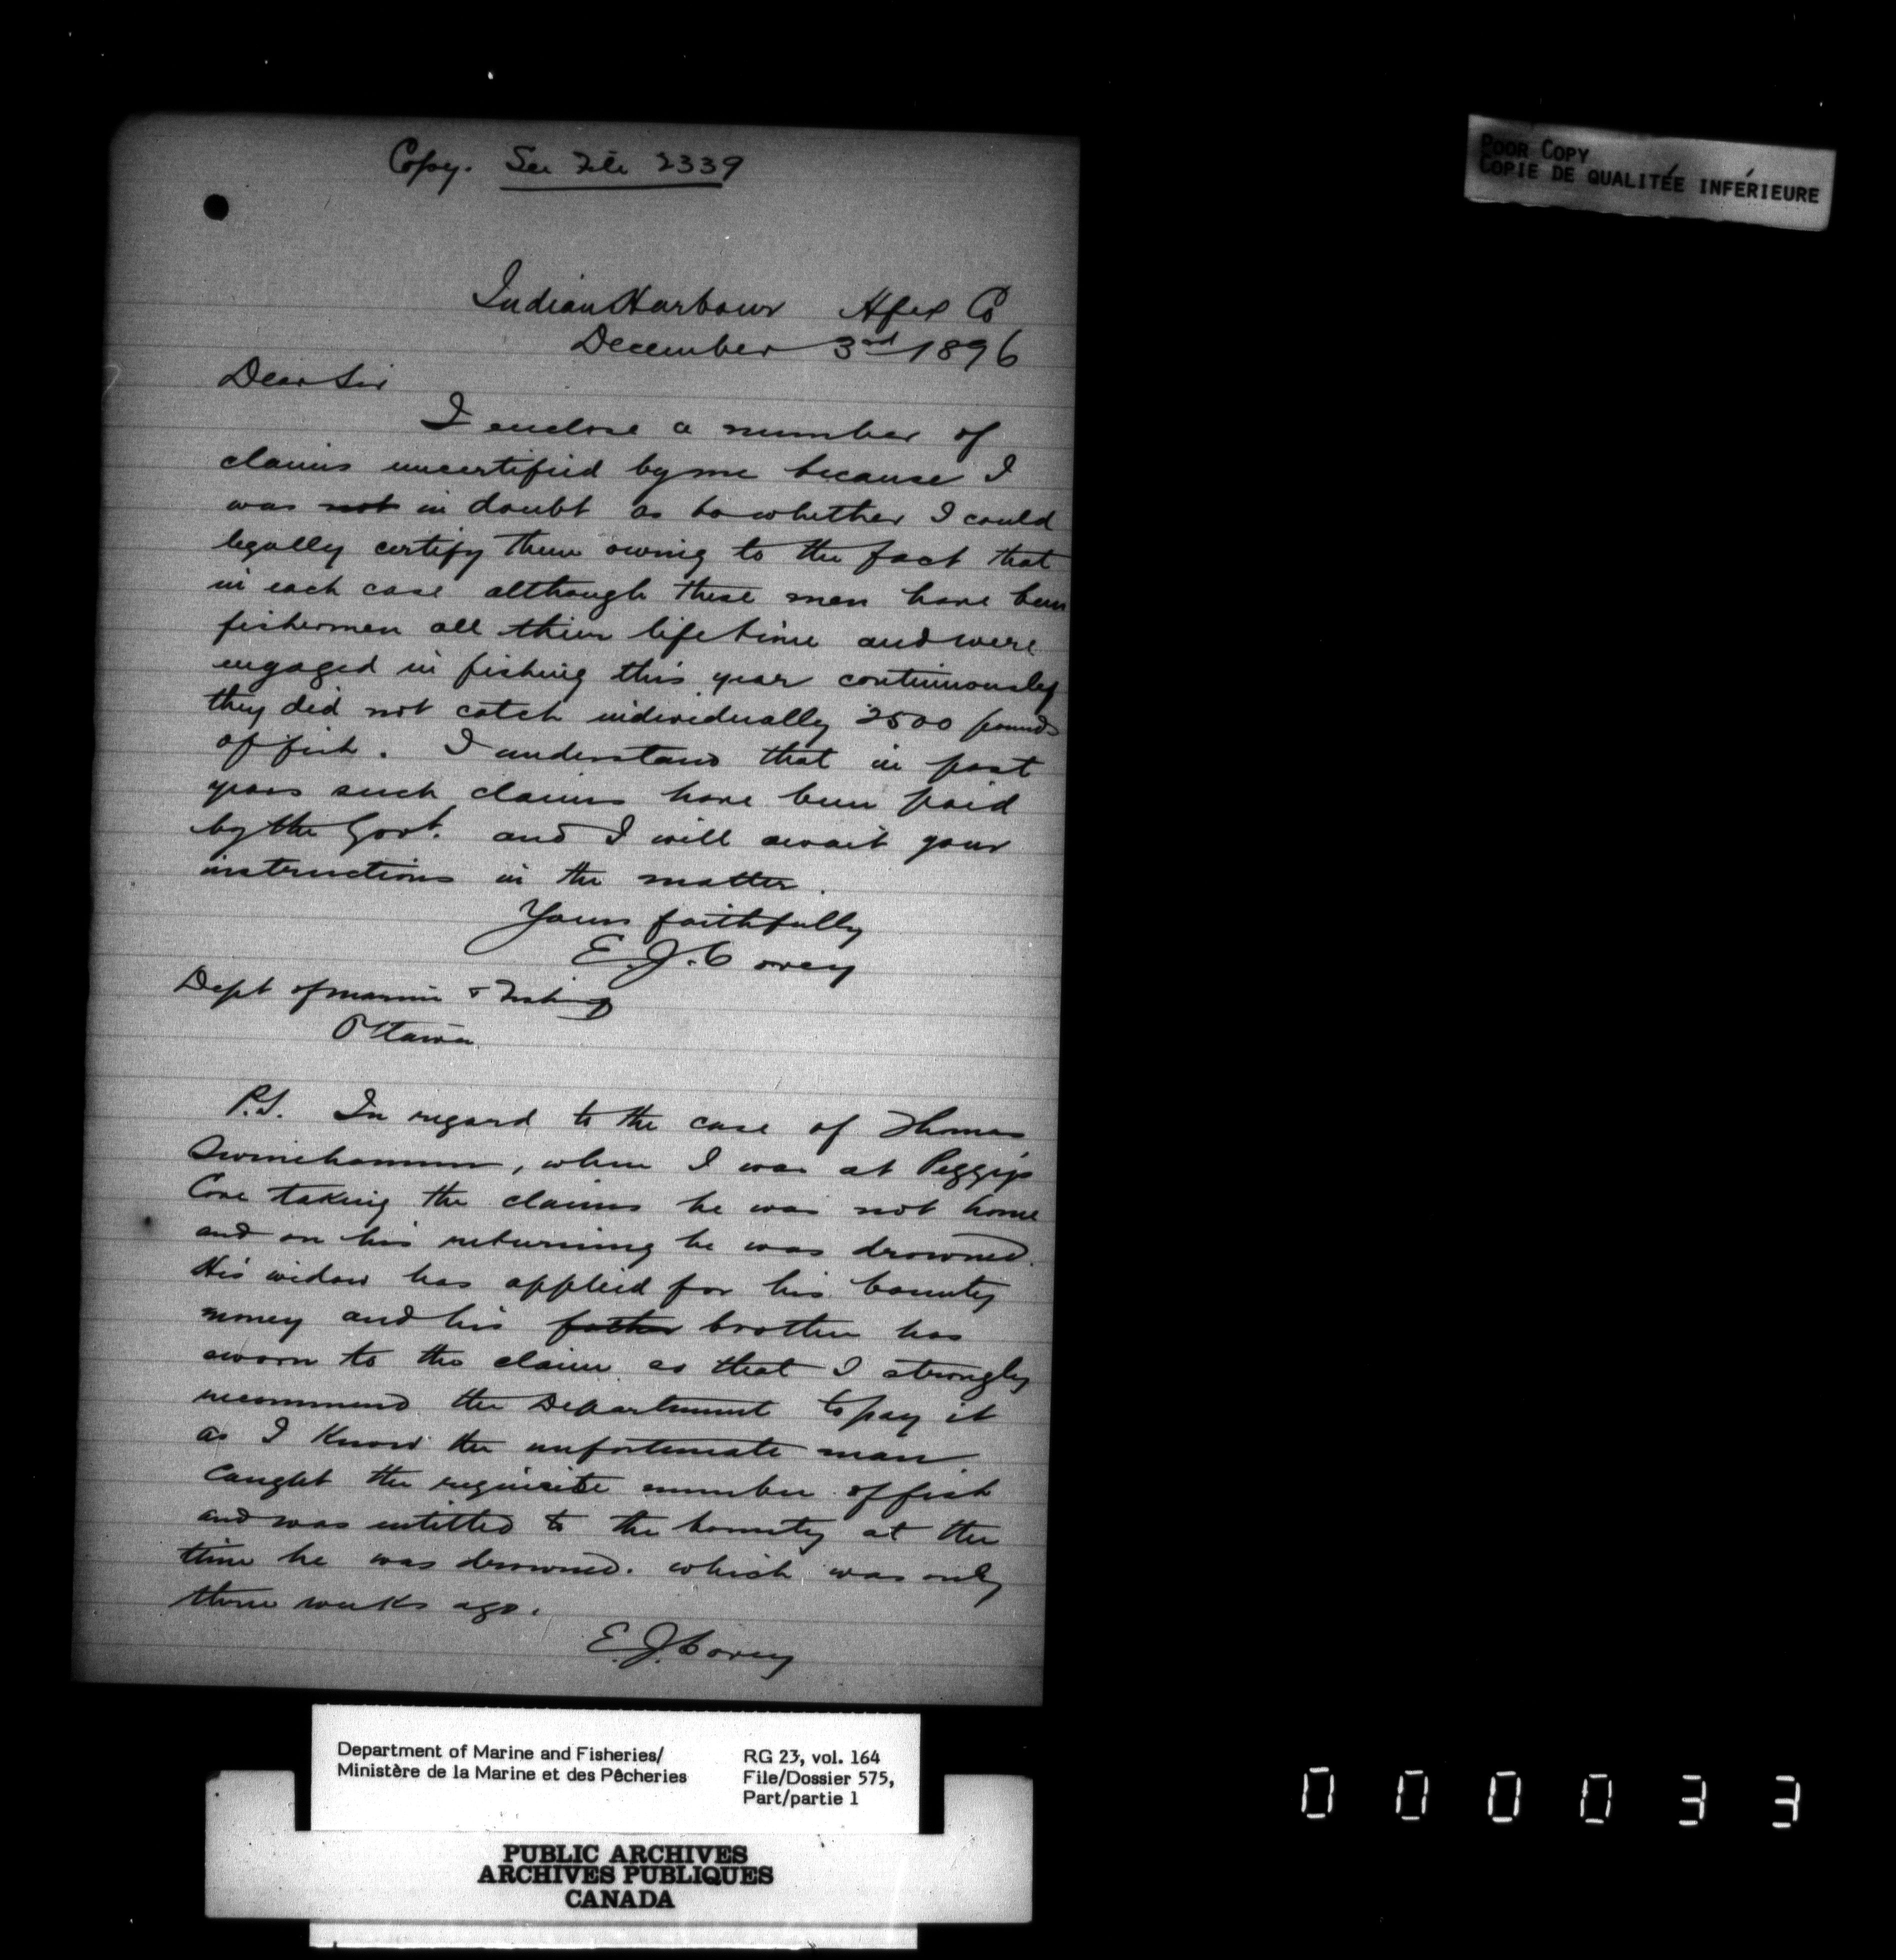 Copy. See File 2339
Indian Harbour Hfex Co
December 3rd 1896
Dear Sir
I enclose a number of
claims uncertified by me because I
was not in doubt as to whether I could
legally certify them owing to the fact that
in each case although these men have been
fishermen all their life time and were
engaged in fishing this year continuously
they did not catch individually 2500 pounds
of fish. I understand that in past
years such claims have been paid
by the Govt. and I will await your
instructions in the matter.
Yours faithfully
E. J. Corey
Dept of Marine & Fishing
Ottawa
P.S. In regard to the case of Thomas
Swinehammer, when I was at Peggys
Cove taking the claims he was not home
and on his returning he was drowned.
His widow has applied for his bounty
money and his father brother has
sworn to the claim as that I strongly
recommend the Department to pay it
as I know the unfortunate man
caught the requisite number of fish
and was intitled to the bounty at the
time he was drowned. which was only
three weeks ago.
E. J. Corey
POOR COPY
COPIE DE QUALITÉE INFÉRIEURE
Department of Marine and Fisheries/
Ministère de la Marine et des Pêcheries
RG 23, vol. 164
File/Dossier 575,
Part/partie 1
PUBLIC ARCHIVES
ARCHIVES PUBLIQUES
CANADA
000033